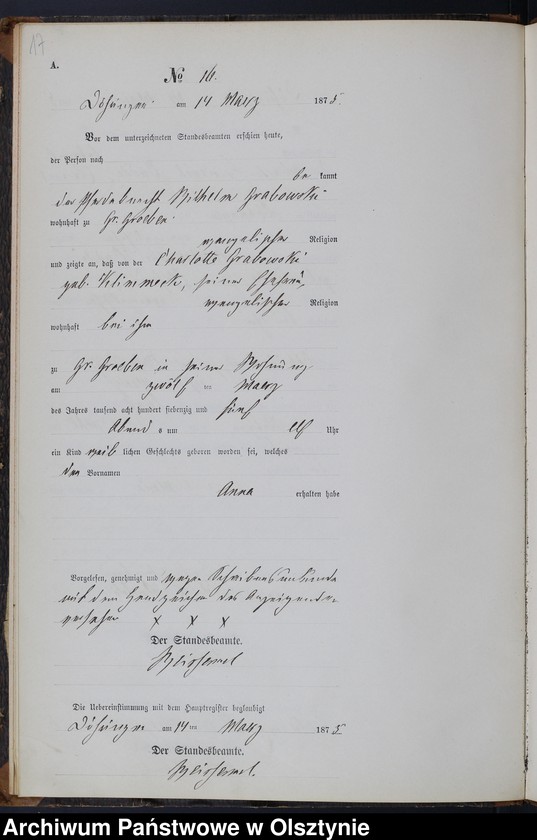 17
A.
No 16.
Döhringen am 14 Maerz 1875.
Vor dem unterzeichneten Standesbeamten erschien heute,
der Person nach
be kannt
der Pferdeknecht Wilhelm Grabowski
wohnhaft zu Gr. Groeben
evangelischer Religion
und zeigte an, daß von der Charlotte Grabowski
geb. Klimmeck, seiner Ehefrau,
evangelischer Religion
wohnhaft bei ihm
zu Gr. Groeben in seiner Wohnung
am zwölf ten Maerz
des Jahres tausend acht hundert siebenzig und fünf
Abend s um elf Uhr
ein Kind weib lichen Geschlechts geboren worden sei, welches
den Vornamen
Anna erhalten habe
Vorgelesen, genehmigt und wegen Schreibensunkunde
mit dem Handzeichen des Anzeigenden
versehen X X X
Der Standesbeamte.
Die Uebereinstimmung mit dem Hauptregister beglaubigt
Döhringen am 14 ten Maerz 1875
Der Standesbeamte.
Archiwum Państwowe w Olsztynie